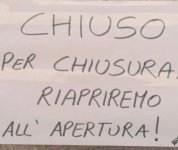 CHIUSO
PER CHIUSURA.
RIAPRIREMO
ALL' APERTURA!